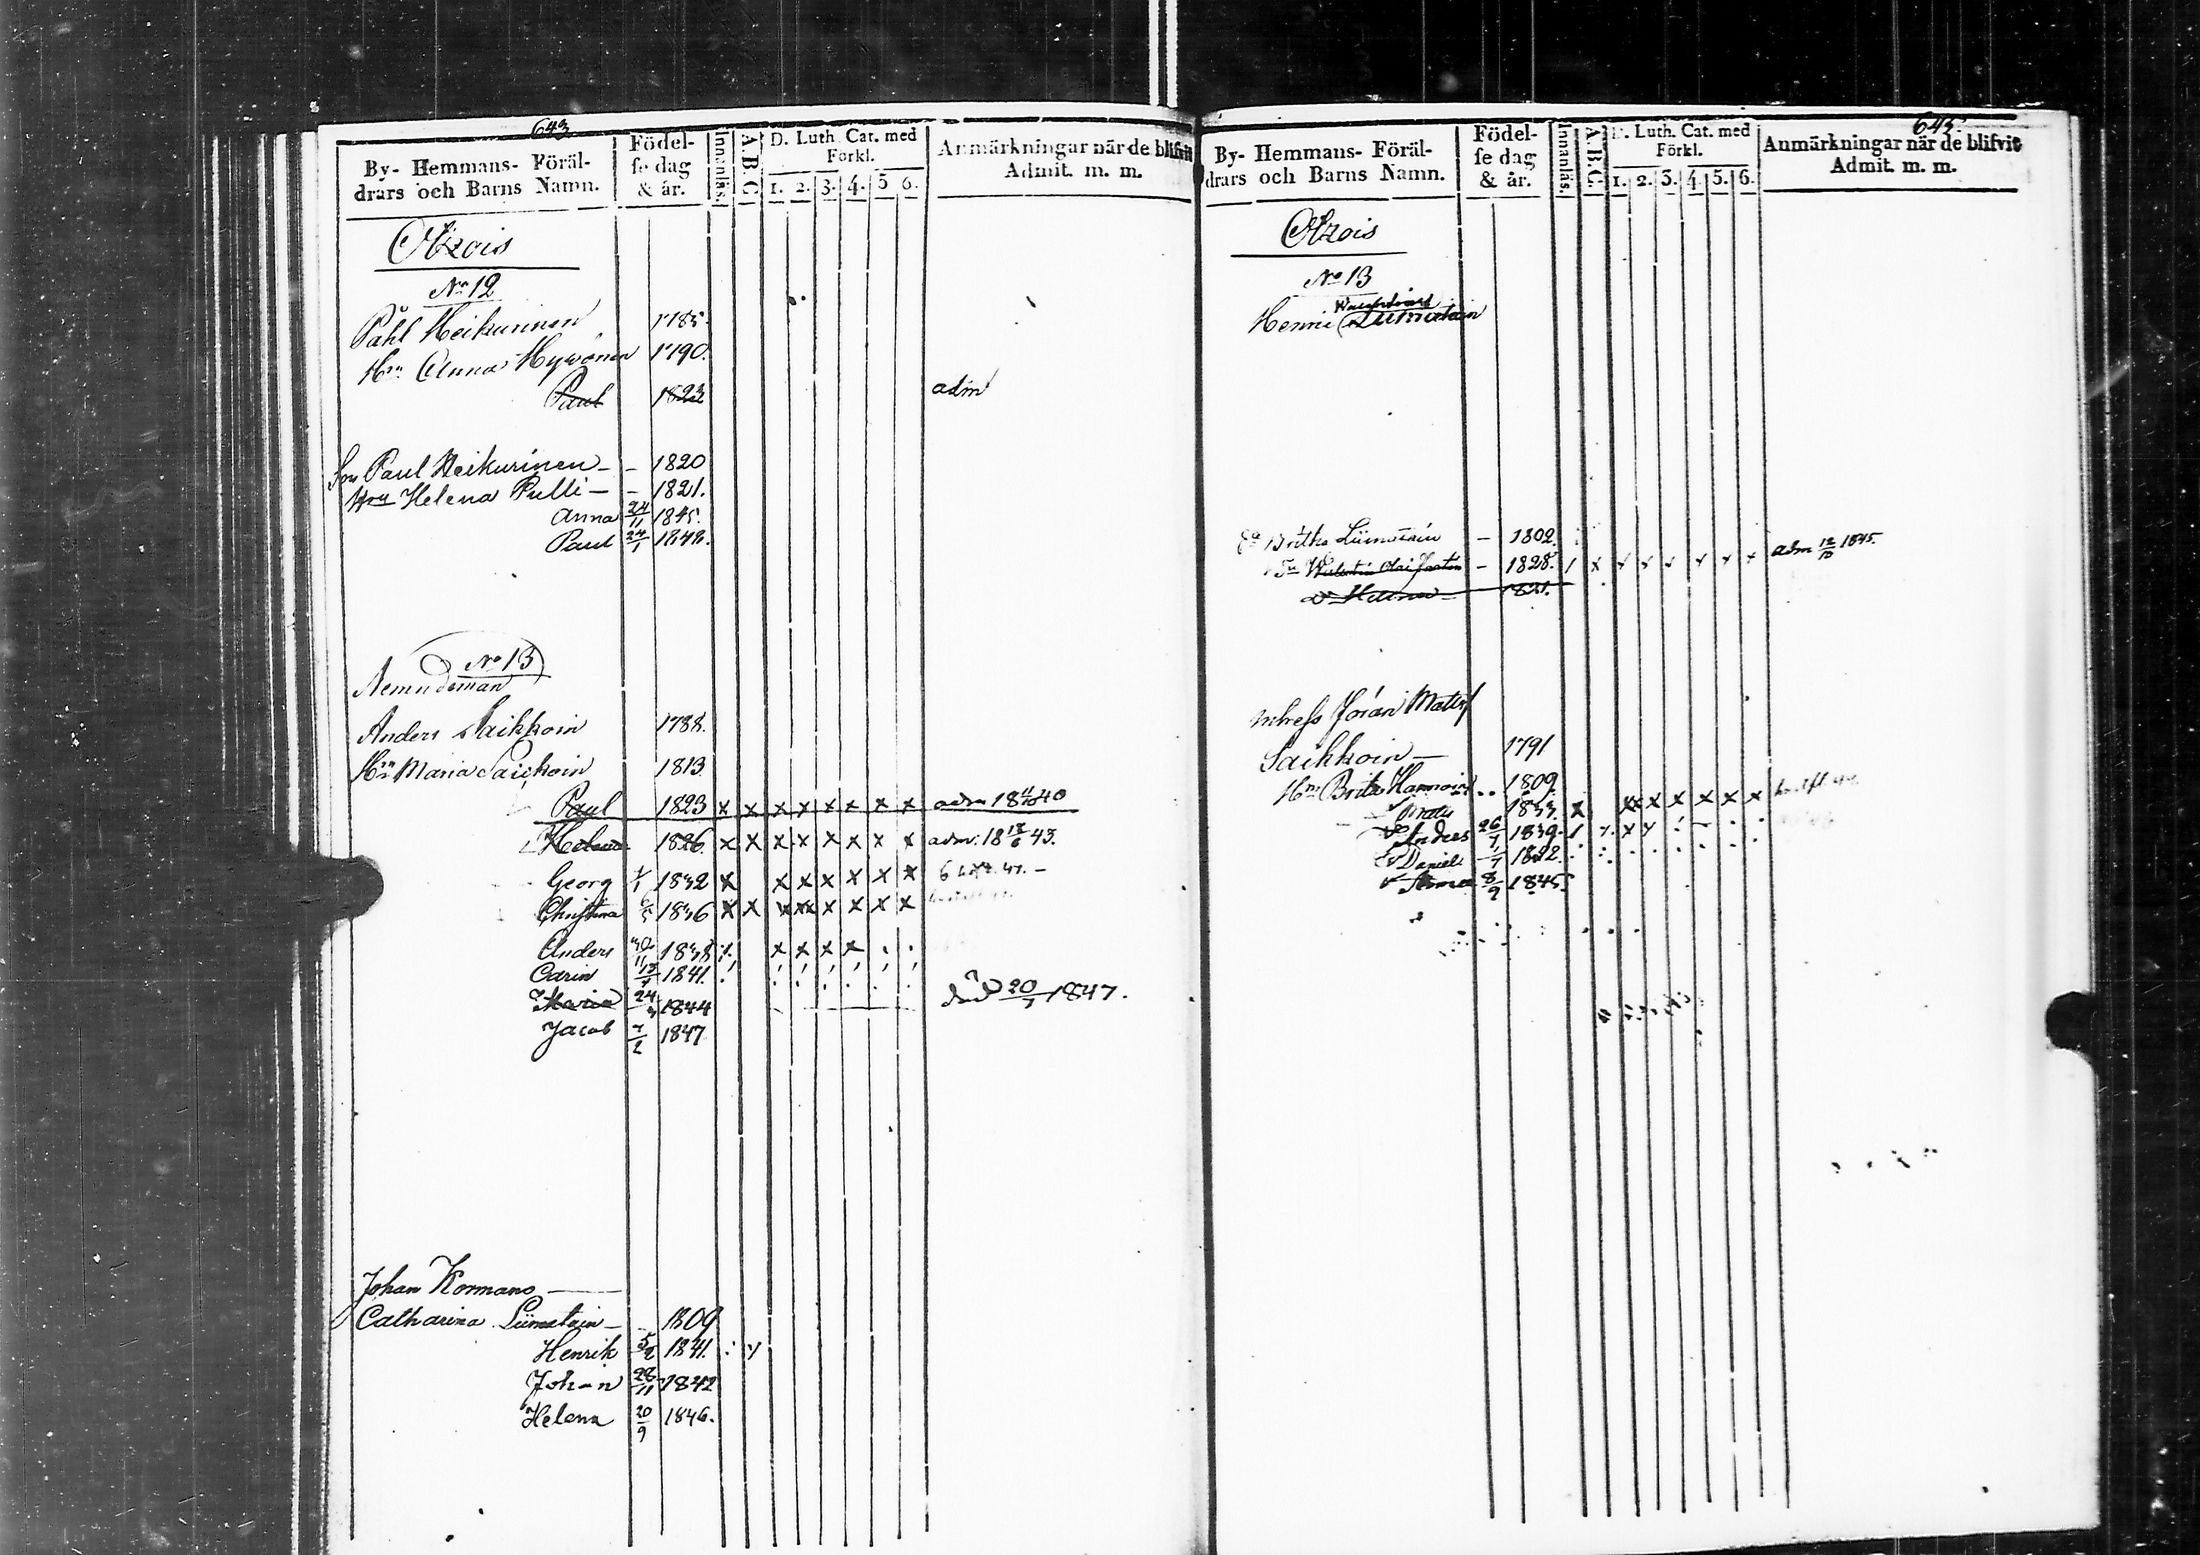 643
By- Hemmans- Föräl-
drars och Barns Namn.
Födel-
se dag
& år.
Innanläs.
A.B.C.
D. Luth. Cat. med
Förkl.
1. 2. 3. 4. 5 6.
Anmärkningar när de blifvit
Admit. m. m.
No 12
Påhl Heikurinen 1785.
Hn Anna Hywönen 1790.
Paul 1822 adm
Son Paul Heikurinen - - 1820
Hru Helena Pulli - - 1821.
Anna 24/11 1845.
Paul 24/1 1848.
No 13
Nemndeman
Anders Saikkoin 1788.
Hn Maria Saickoin 1813
Paul 1823 x x x x x x x x adm 18 40
Helena 1826. x x x x x x x x adm. 18 43.
Georg 1832 x x x x x x x
Christina 1836 x x x x x x x x
Anders 30/11 1838 x x x x
Carin 13/4 1841.
Maria 24 1844 död 20/7 1847.
Jacob 7/2 1847
Johan Kormano
Catharina Liimatain - 1809
Henrik 5/2 1841.
Johan 28/11 1842
Helena 20/9 1846.
645.
By- Hemmans- Föräl-
drars och Barns Namn.
Födel-
se dag
& år.
Innanläs.
A.B.C.
D. Luth. Cat. med
Förkl.
1. 2. 3. 4. 5. 6.
Anmärkningar när de blifvit
Admit. m. m.
No 13
Henric Liimatain
Britha Liimatain - 1802.
- 1828. adm 12/10 1845.
Helena 1821.
Jöran Matts
Saikkoin - 1791
Hn Brita Hannoin 1809.
Matts 1833. x x x x x x x
Anders 26/7 1839.
Daniel
Anna 8/9 1845.